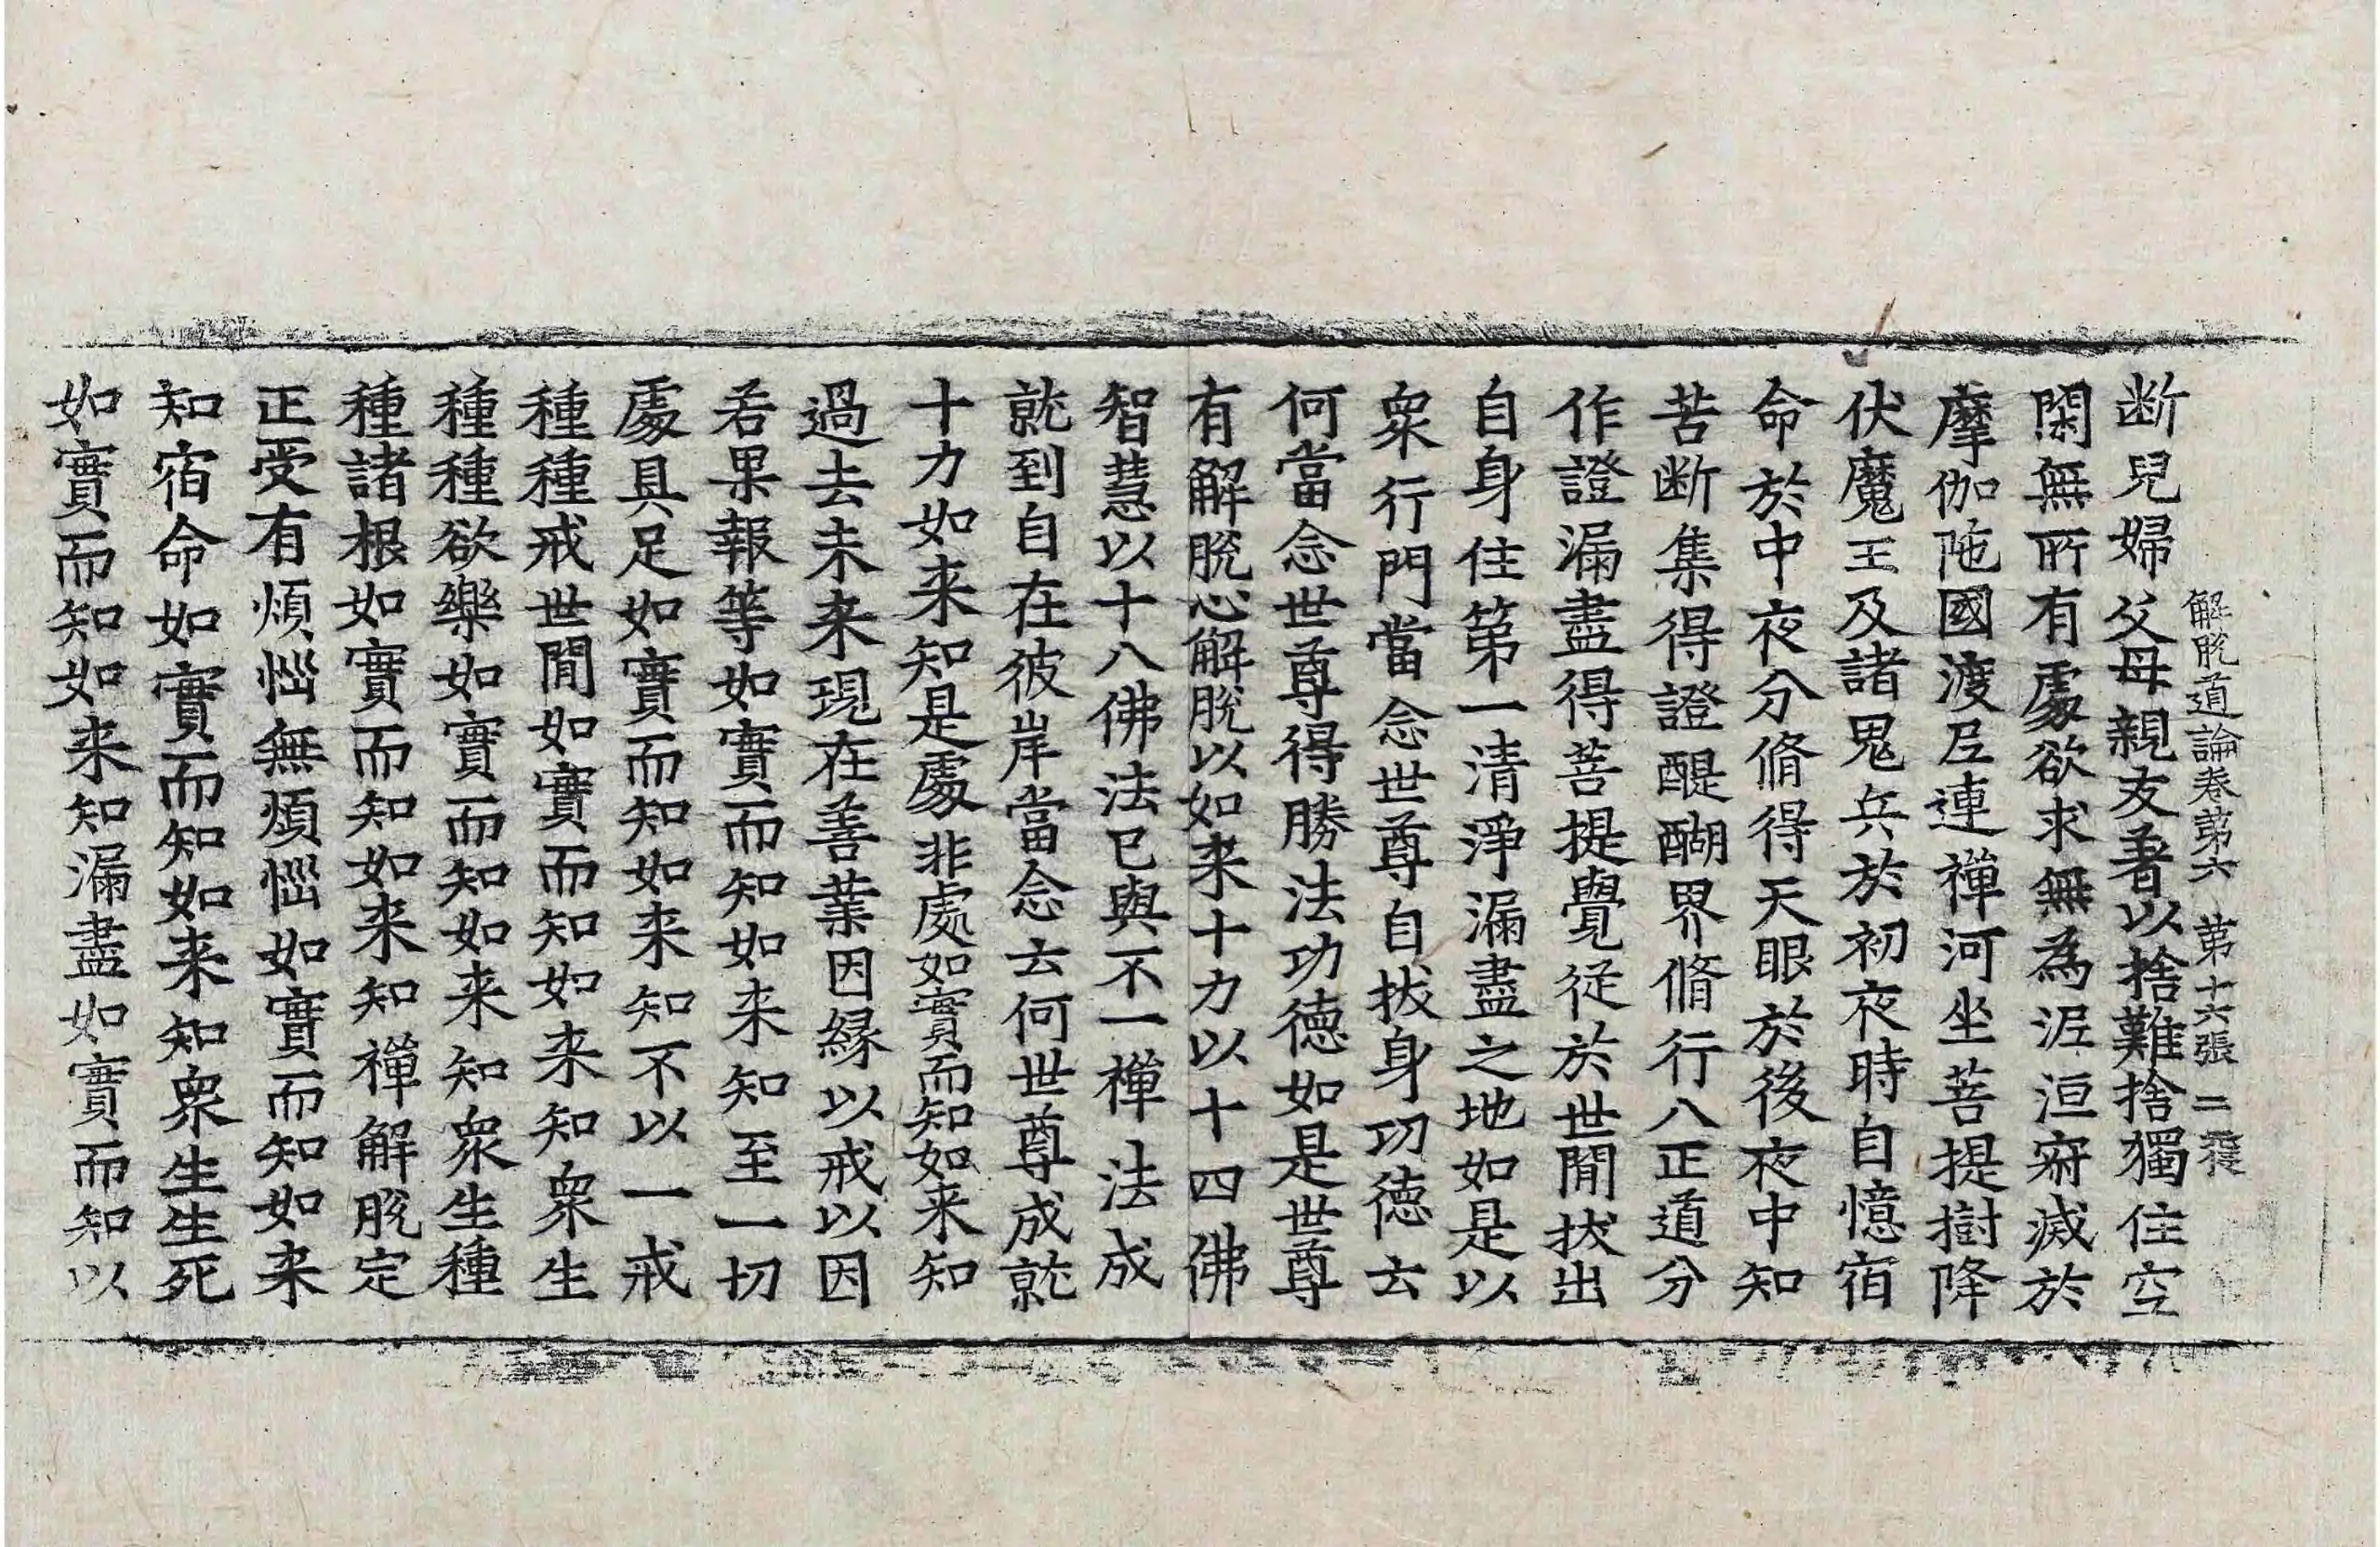 解脫道論卷第六 第十六張 二張
断兒婦父母親友著以捨難捨獨住空
閑無所有處欲求無為泥洹寂滅於
摩伽陁國渡尼連禪河坐菩提樹降
伏魔王及諸鬼兵於初夜時自憶宿
命於中夜分脩得天眼於後夜中知
苦断集得證醍醐界脩行八正道分
作證漏盡得菩提覺從於世間拔出
自身住第一清淨漏盡之地如是以
衆行門當念世尊自拔身功德云
何當念世尊得勝法功德如是世尊
有解脫心解脫以如来十力以十四佛
智慧以十八佛法已與不一禪法成
就到自在彼岸當念云何世尊成就
十力如来知是處非處如實而知如来知
過去未来現在善業因緣以戒以因
若果報等如實而知如来知至一切
處具足如實而知如来知不以一戒
種種戒世間如實而知如来知衆生
種種欲樂如實而知如来知衆生種
種諸根如實而知如来知禪解脫定
正受有煩惱無煩惱如實而知如来
知宿命如實而知如来知衆生生死
如實而知如来知漏盡如實而知以